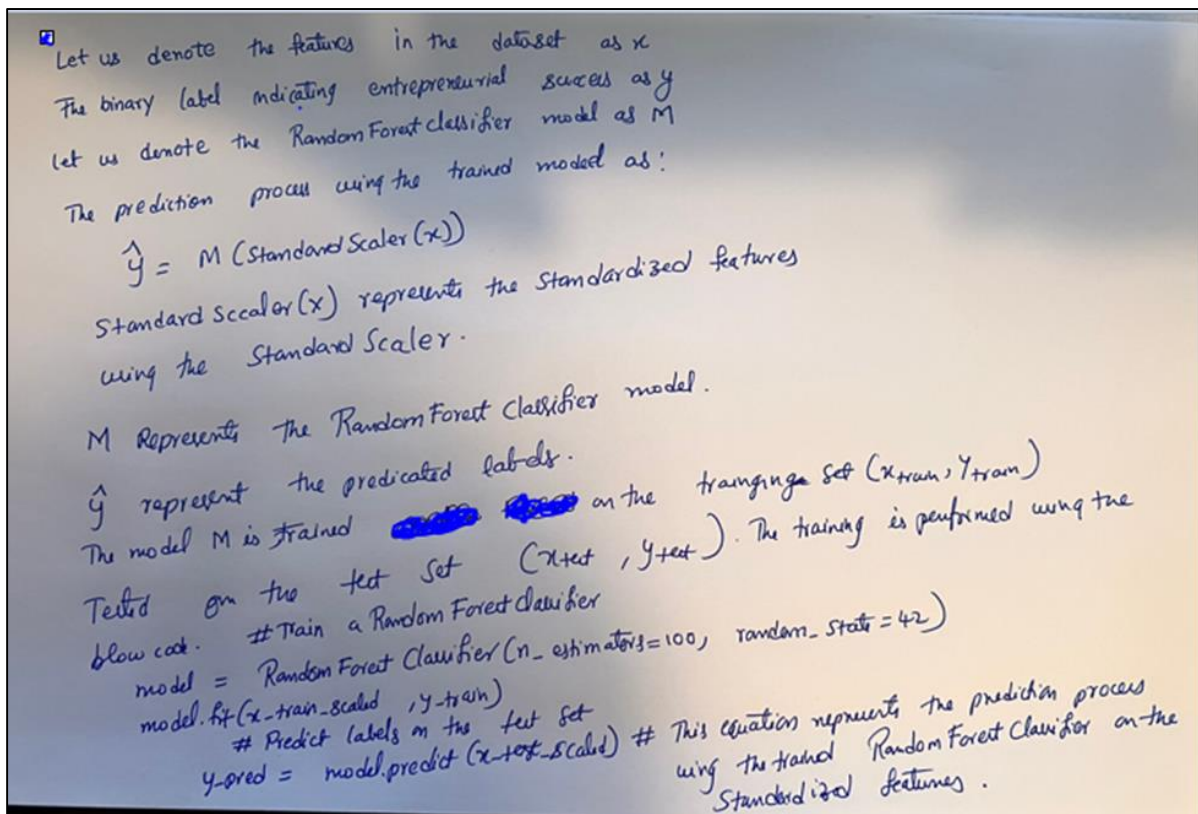 Let us denote the features in the dataset as x
The binary label indicating entrepreneurial success as y
Let us denote the Random Forest classifier model as M
The prediction process using the trained modeel as:
ŷ = M (Standard Scaler (x))
Standard Sccaler (x) represents the Standardized features
using the Standard Scaler.
M Represents the Random Forest Classifier model.
ŷ represent the predicated labels.
The model M is trained on the traınginge Set (x train, Y train)
Tested on the test set (x test, y test). The training is performed using the
blow code. # Train a Random Forest Classifier
model = Random Forest Classifier (n_estimators=100, random_state = 42)
model.fit (x_train_scaled, y_train)
# Predict labels on the test set
y_pred = model.predict (x_test_scaled) # This equation represents the prediction process
using the trained Random Forest Classifier on the
Standardized features.